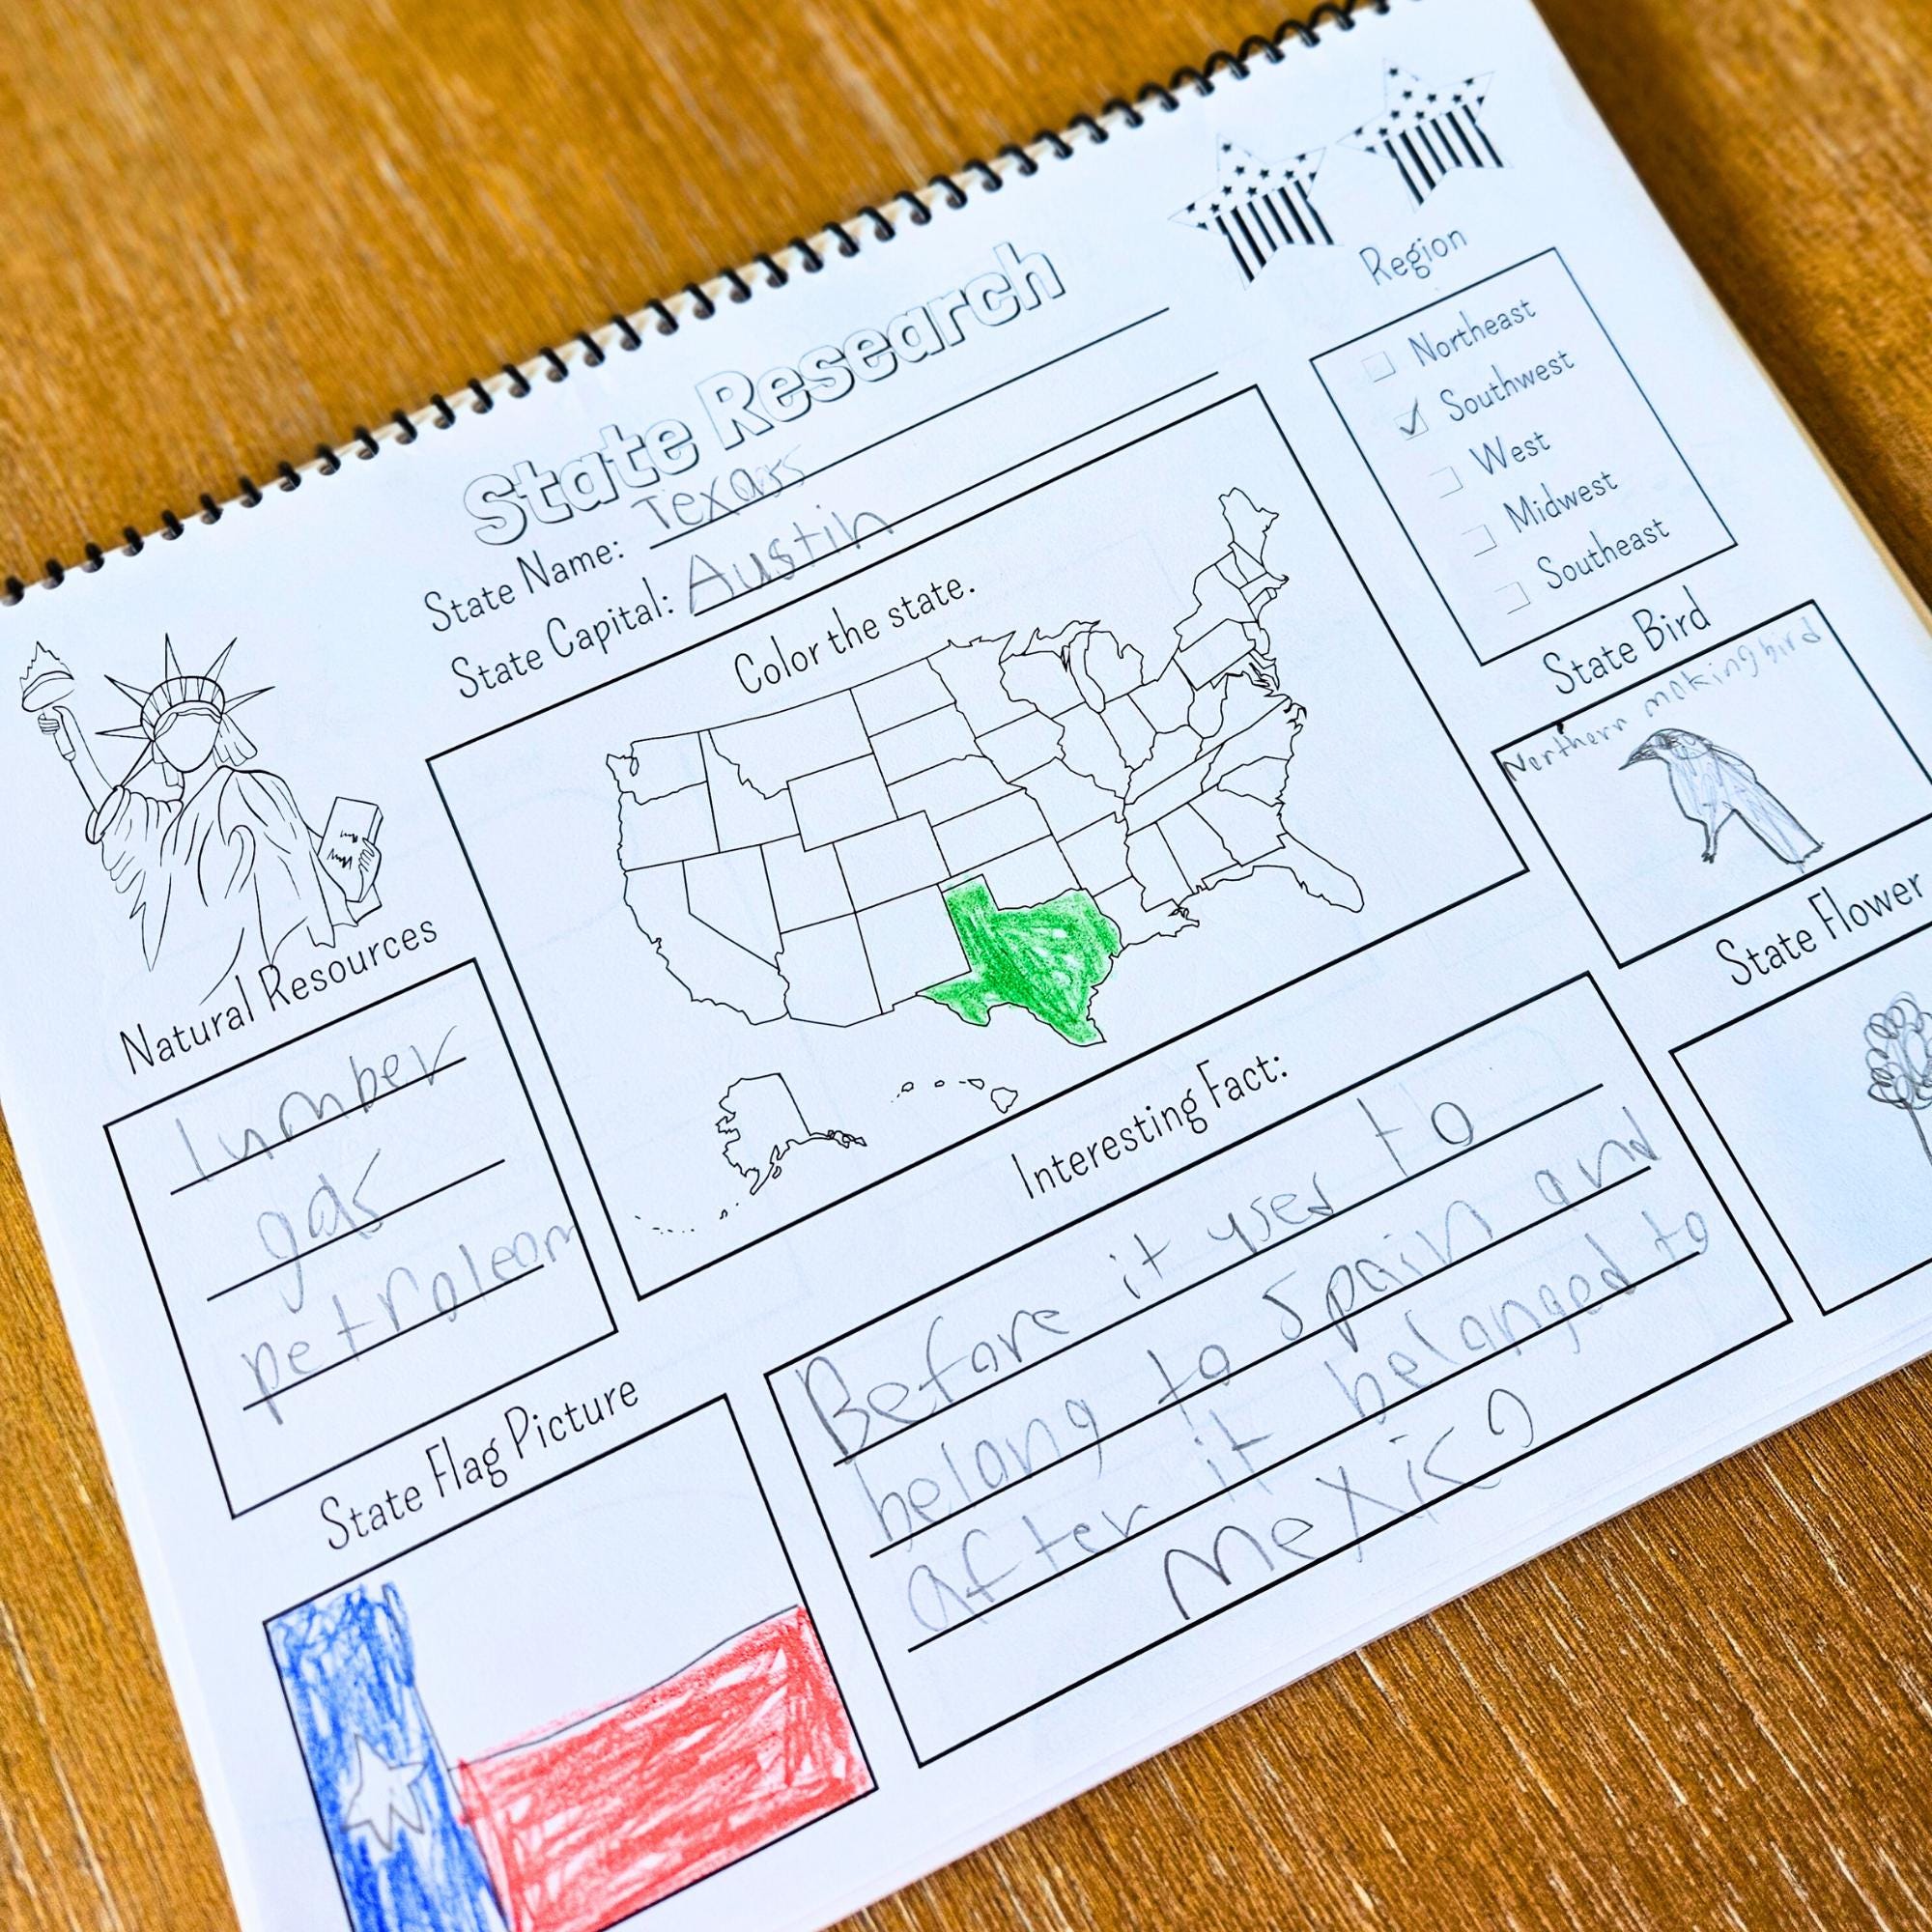 State Research
State Name: Texas
State Capital: Austin
Color the state.
Region
Northeast
Southwest
West
Midwest
Southeast
State Bird
Northern mokingbird
State Flower
Natural Resources
lumber
gas
petroleom
Interesting Fact:
Before it used to
belong to spain and
after it belonged to
mexico
State Flag Picture